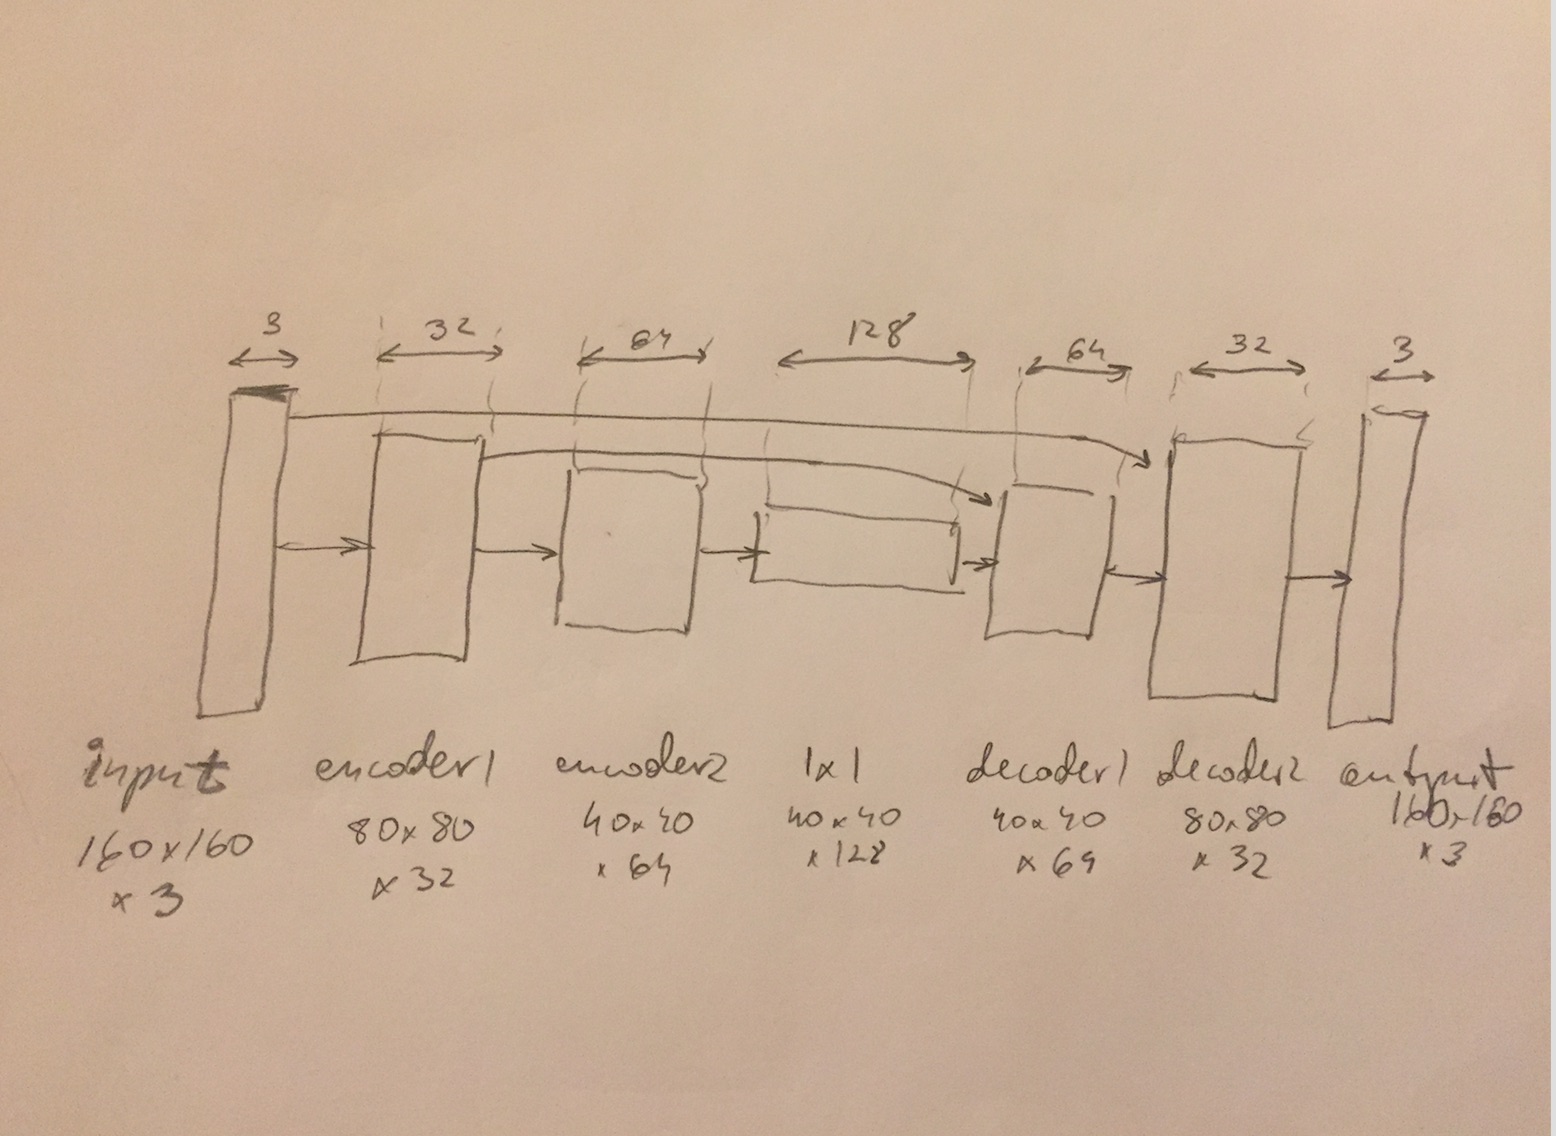 3
32
64
128
64
32
3
input
160x160
x 3
encoder1
80x80
x 32
encoder2
40x40
x 64
1x1
40x40
x 128
decoder1
40x40
x 64
decoder2
80x80
x 32
output
160x160
x 3